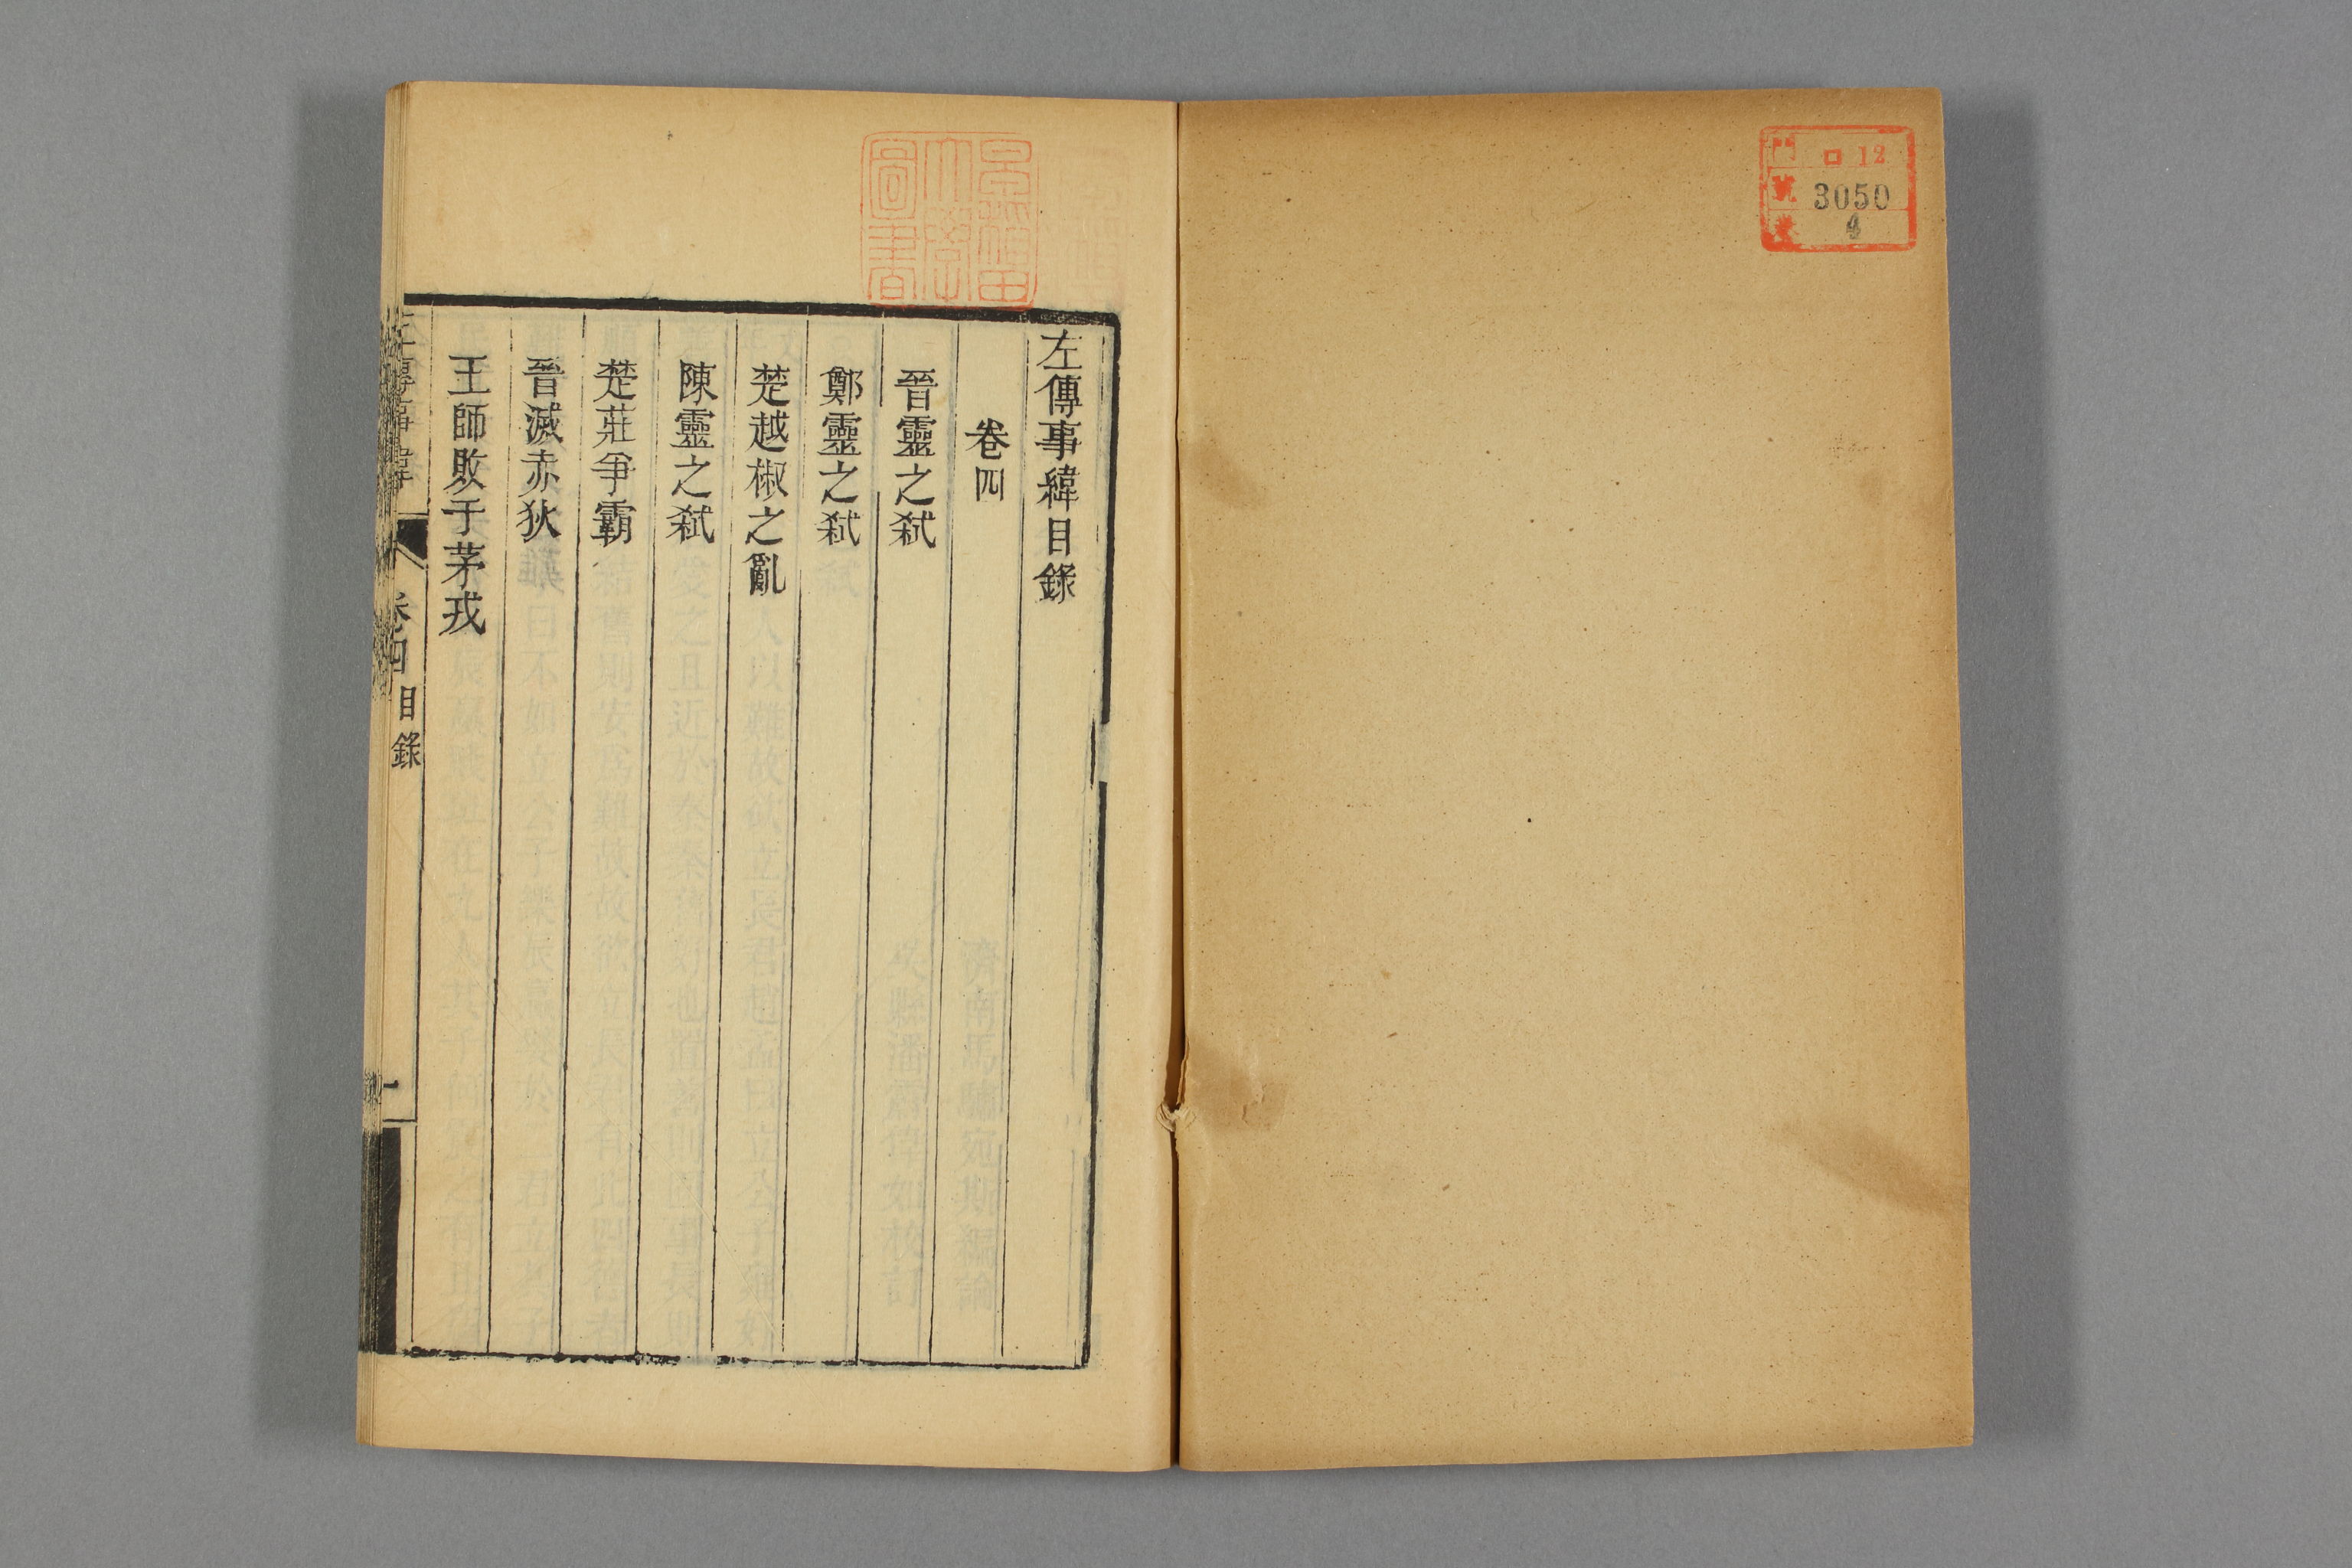 門 ロ 12
號 3050
巻 4
左傳事緯目錄
卷四
晉靈之弑
鄭靈之弑
楚越椒之亂
陳靈之弑
楚莊爭霸
晉滅赤狄
王師敗于茅戎
左傳事緯 卷四 目錄 一